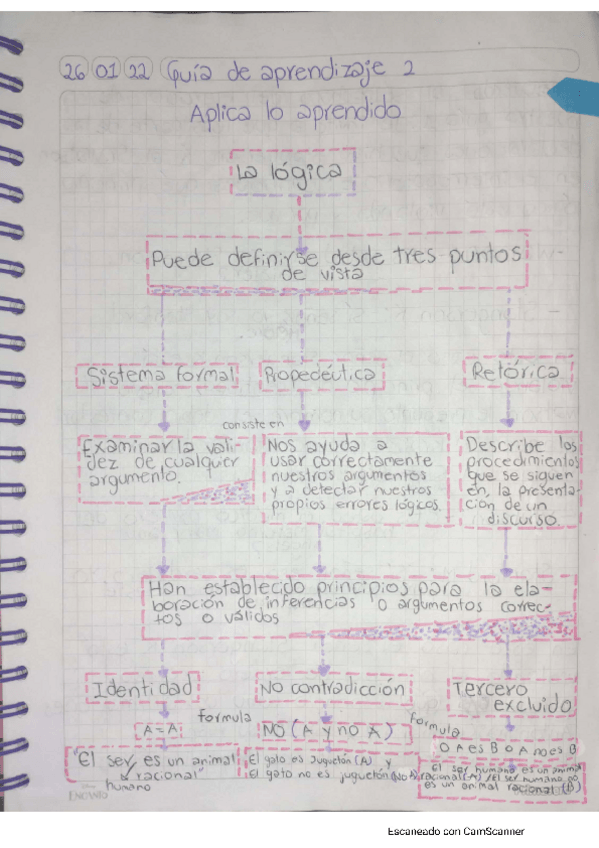 26 01 22 Guía de aprendizaje 2
Aplica lo aprendido
La lógica
Puede definirse desde tres puntos
de vista
Sistema formal
Propedéutica
Retórica
consiste en
Examinar la vali-
dez de cualquier
argumento.
Nos ayuda a
usar correctamente
nuestros argumentos
y a detectar nuestros
propios errores lógicos.
Describe los
procedimientos
que se siguen
en, la presenta-
ción de un
discurso.
Han establecido principios para la ela-
boración de inferencias o argumentos correc-
tos o válidos
Identidad
No contradicción
Tercero
excluido
formula
formula
A=A
NO (A y no A)
O A es B o A no es B
"El ser, es un animal
racional"
humano
El gato es Juguetón (A) y
El gato no es juguetón (No A)
El ser humano es un animal
racional (A) /El ser humano no
es un animal racional (B)
ENCANTO
Escaneado con CamScanner